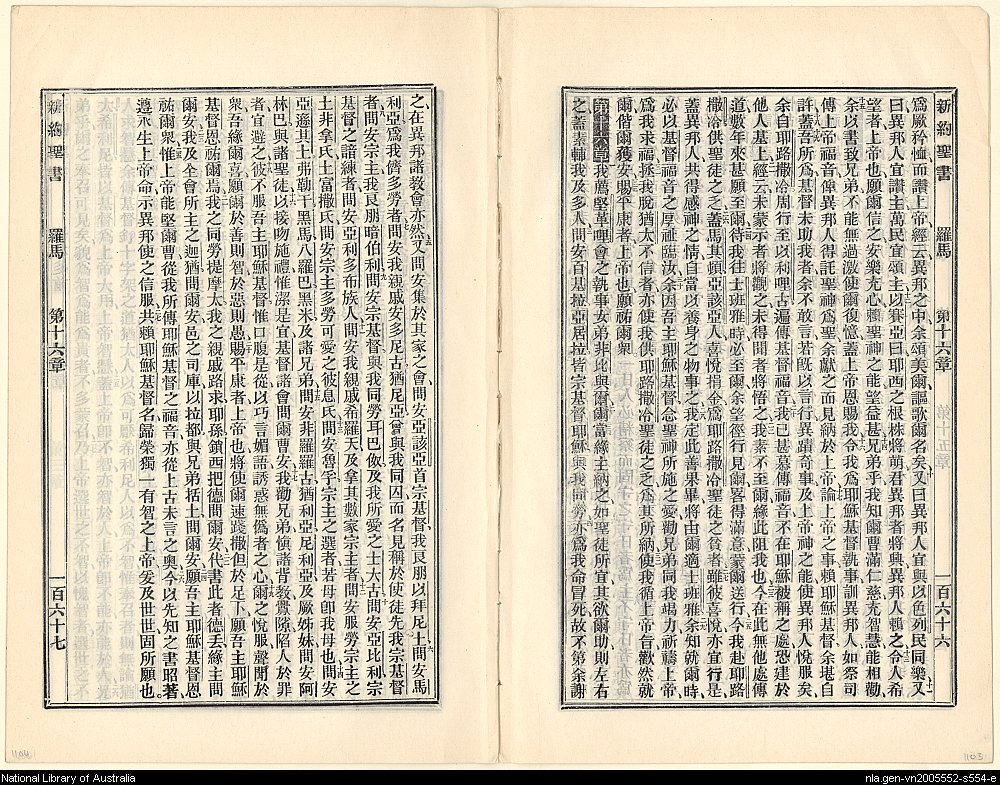 新約聖書　羅馬　第十六章　一百六十六
爲厥矜恤而讚上帝經云異邦之中余頌美爾謳歌爾名矣又曰異邦人宜與以色列民同樂又
曰異邦人宜讚主萬民宜頌主以賽亞曰耶西之根株將萌君異邦者將興異邦人賴之令人希
望者上帝也願爾信之安樂充心賴聖神之能望益甚兄弟乎我知爾曹滿仁慈充智慧能相勸
余以書致兄弟不能無過激使爾復憶蓋上帝恩賜我令我爲耶穌基督執事訓異邦人如祭司
傳上帝福音俾異邦人得託聖神爲聖余獻之而見納於上帝論上帝之事賴耶穌基督余堪自
許蓋吾所爲基督未助我者余不敢言若旣以言行異蹟奇事及上帝神之能使異邦人悅服矣
余自耶路撒冷周行至以利哩古遍傳基督福音我已甚慕傳福音不在耶穌被稱之處恐建於
他人基上經云未蒙示者將觀之未得聞者將悟之我素不至爾緣此阻我也今在此無他處傳
道數年來甚願至爾待我往士班雅時必至爾余望徑行見爾畧得滿意蒙爾送行今我赴耶路
撒冷供聖徒之乏蓋馬其頓亞該亞人喜悅捐金爲耶路撒冷聖徒之貧者雖彼喜悅亦宜行是
蓋異邦人共得感神之情自當以養身之物事之我定此善果畢將由爾適士班雅余知就爾時
必以基督福音之厚祉臨汝余因吾主耶穌基督念聖神所施之愛勸兄弟同我竭力祈禱上帝
爲我求福拯我脫猶太不信者亦使我供耶路撒冷聖徒之乏爲其所納使我循上帝旨歡然就
爾偕爾獲安賜平康者上帝也願祐爾衆
第十六章我薦堅革哩會之執事女弟非比與爾爾當緣主納之如聖徒所宜其欲爾助則左右
之蓋素輔我及多人問安百基拉亞居拉皆宗基督耶穌與我同勞亦爲我命冒死故不第余謝
之在異邦諸教會亦然又問安集於其家之會問安亞該亞首宗基督我良朋以拜尼土問安馬
利亞爲我儕多勞者問安我親戚安多尼古猶尼亞曾與我同囚而名見稱於使徒先我宗基督
者問安宗主我良朋暗伯利問安宗基督與我同勞耳巴伋及我所愛之士大古問安亞比利宗
基督之諳練者問安亞利多布族人問安我親戚希羅天及拿其數家宗主者問安服勞宗主之
土非拿氏土富撒氏問安宗主多勞可愛之彼息氏問安魯孚宗主之選者若母卽我母也問安
亞遜其土弗勒干黑馬八羅巴黑米及諸兄弟問安非羅羅古猶利亞尼利亞及厥姊妹問安阿
林巴與諸聖徒以接吻施禮惟潔是宜基督諸會問爾曹安我勸兄弟愼諸背教釁隙陷人於罪
者宜避之彼不服吾主耶穌基督惟口腹是從以巧言媚語誘惑無僞者之心爾之悅服聲聞於
衆吾緣爾喜願爾於善則智於惡則愚賜平康者上帝也將使爾速踐撒但於足下願吾主耶穌
基督恩祐爾焉我之同勞提摩太我之親戚路求耶孫鎖西把德問爾安代書此者德丟緣主問
爾安我及全會所主之迦猶問爾安邑之司庫以拉都與兄弟括土問爾安願吾主耶穌基督恩
祐爾衆惟上帝能堅爾曹從我所傳耶穌基督之福音亦從上古未言之奧今以先知之書昭著
遵永生上帝命示異邦使之信服共賴耶穌基督名歸榮獨一有智之上帝爰及世世固所願也
新約聖書　羅馬　第十六章　一百六十七
1104
1103
National Library of Australia
nla.gen-vn2005552-s554-e